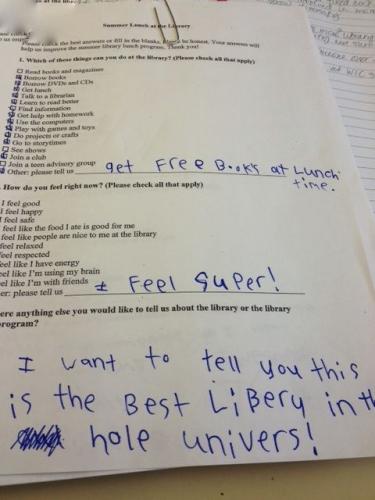 Summer Lunch at the Library
Please check the best answers or fill in the blanks. Please be honest. Your answers will
help us improve the summer library lunch program. Thank you!
1. Which of these things can you do at the library? (Please check all that apply)
Read books and magazines
Borrow books
Borrow DVDs and CDs
Get lunch
Talk to a librarian
Learn to read better
Find information
Get help with homework
Use the computers
Play with games and toys
Do projects or crafts
Go to storytimes
See shows
Join a club
Join a teen advisory group
Other: please tell us get Free Books at Lunch
time.
. How do you feel right now? (Please check all that apply)
I feel good
feel happy
feel safe
feel like the food I ate is good for me
feel like people are nice to me at the library
feel relaxed
feel respected
eel like I have energy
eel like I'm using my brain
el like I'm with friends
er: please tell us I Feel Super!
ere anything else you would like to tell us about the library or the library
rogram?
I want to tell you this
is the Best LiBery in th
hole univers!